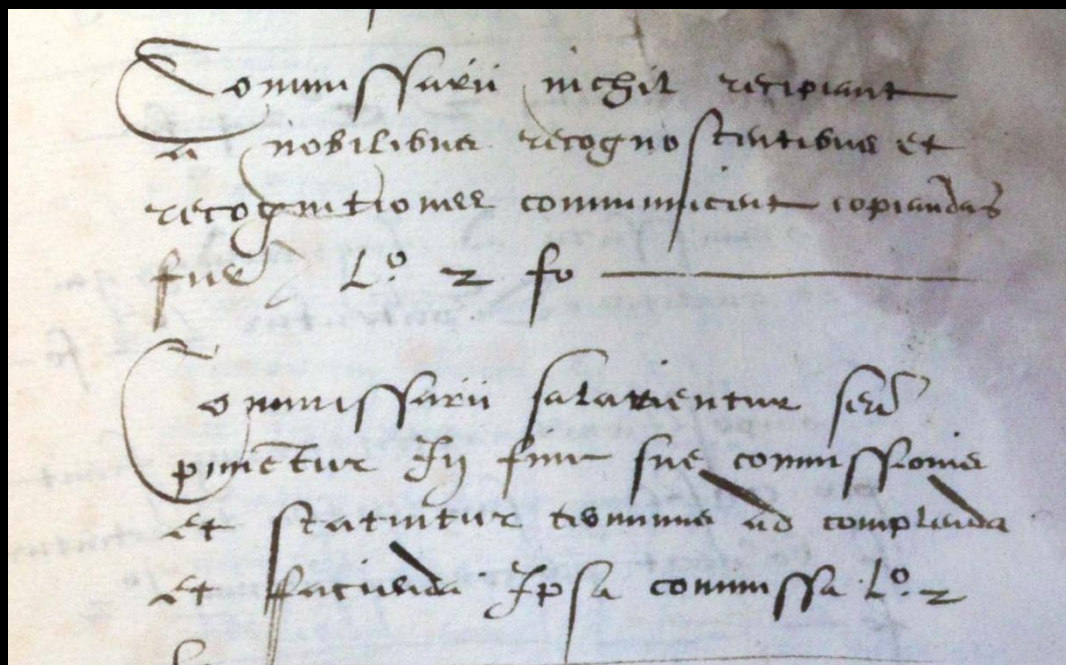 Commissarii nichil recipiant
a nobilibus recognoscentibus et
recognitiones communicent copiandas
L.º 2 fo
Commissarii salarientur sed
In fine sue commissionis
et statuitur terminus ad complenda
et facienda Ipsa commissa L.º 2